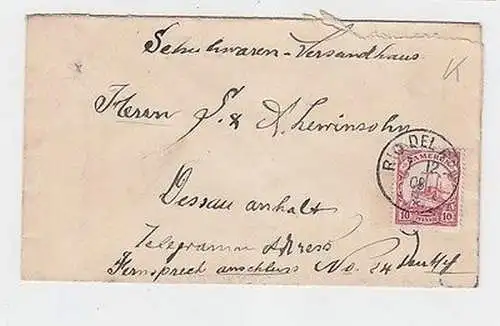 Schuhwaren-Versandhaus
K
Herrn S. & A. Lewinsohn
RIO DEL REY
12
09
KAMERUN
10 PFENNIG 10
Dessau anhalt
Telegramm Adress
Fernsprech anschluss No. 24